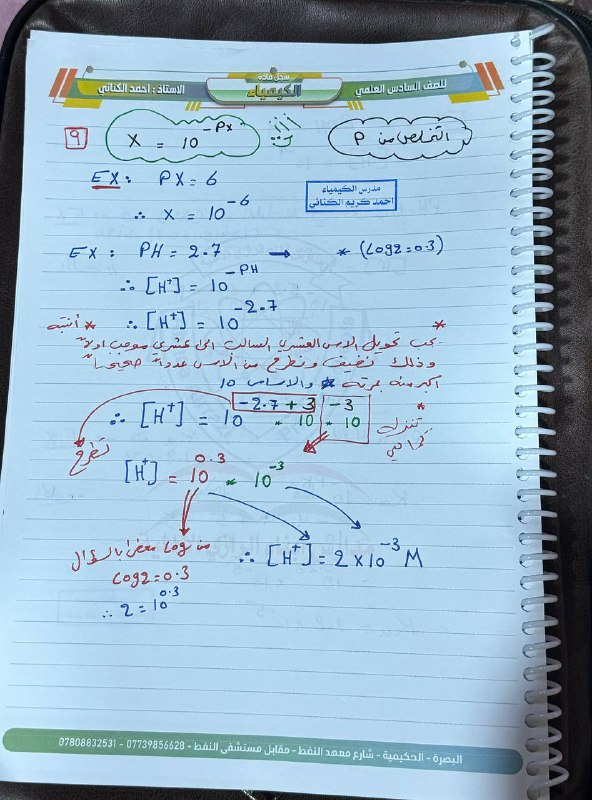 للصف السادس العلمي
سجل مادة
الكيمياء
الاستاذ : احمد الكناني
9
X = 10^-PX
التخلص من P
EX: PX = 6
∴ X = 10^-6
مدرس الكيمياء
احمد كريم الكناني
EX: PH = 2.7 → * (Log2=0.3)
∴ [H⁺] = 10^-PH
∴ [H⁺] = 10^-2.7
* أنتبه *
يجب تحويل الاس العشري السالب الى عشري موجب اولاً
وذلك نضيف ونطرح من الاس عدداً صحيحاً
اكبر منه بمرتبة والاساس 10
∴ [H⁺] = 10^-2.7+3 * 10 * 10^-3
* تنزل
كما هي
تطرح
[H⁺] = 10^0.3 * 10^-3
من Log معطى بالسؤال
Log2=0.3
∴ 2 = 10^0.3
∴ [H⁺] = 2 × 10^-3 M
البصرة - الحكيمية - شارع معهد النفط - مقابل مستشفى النفط - 07739856628 - 07808832531